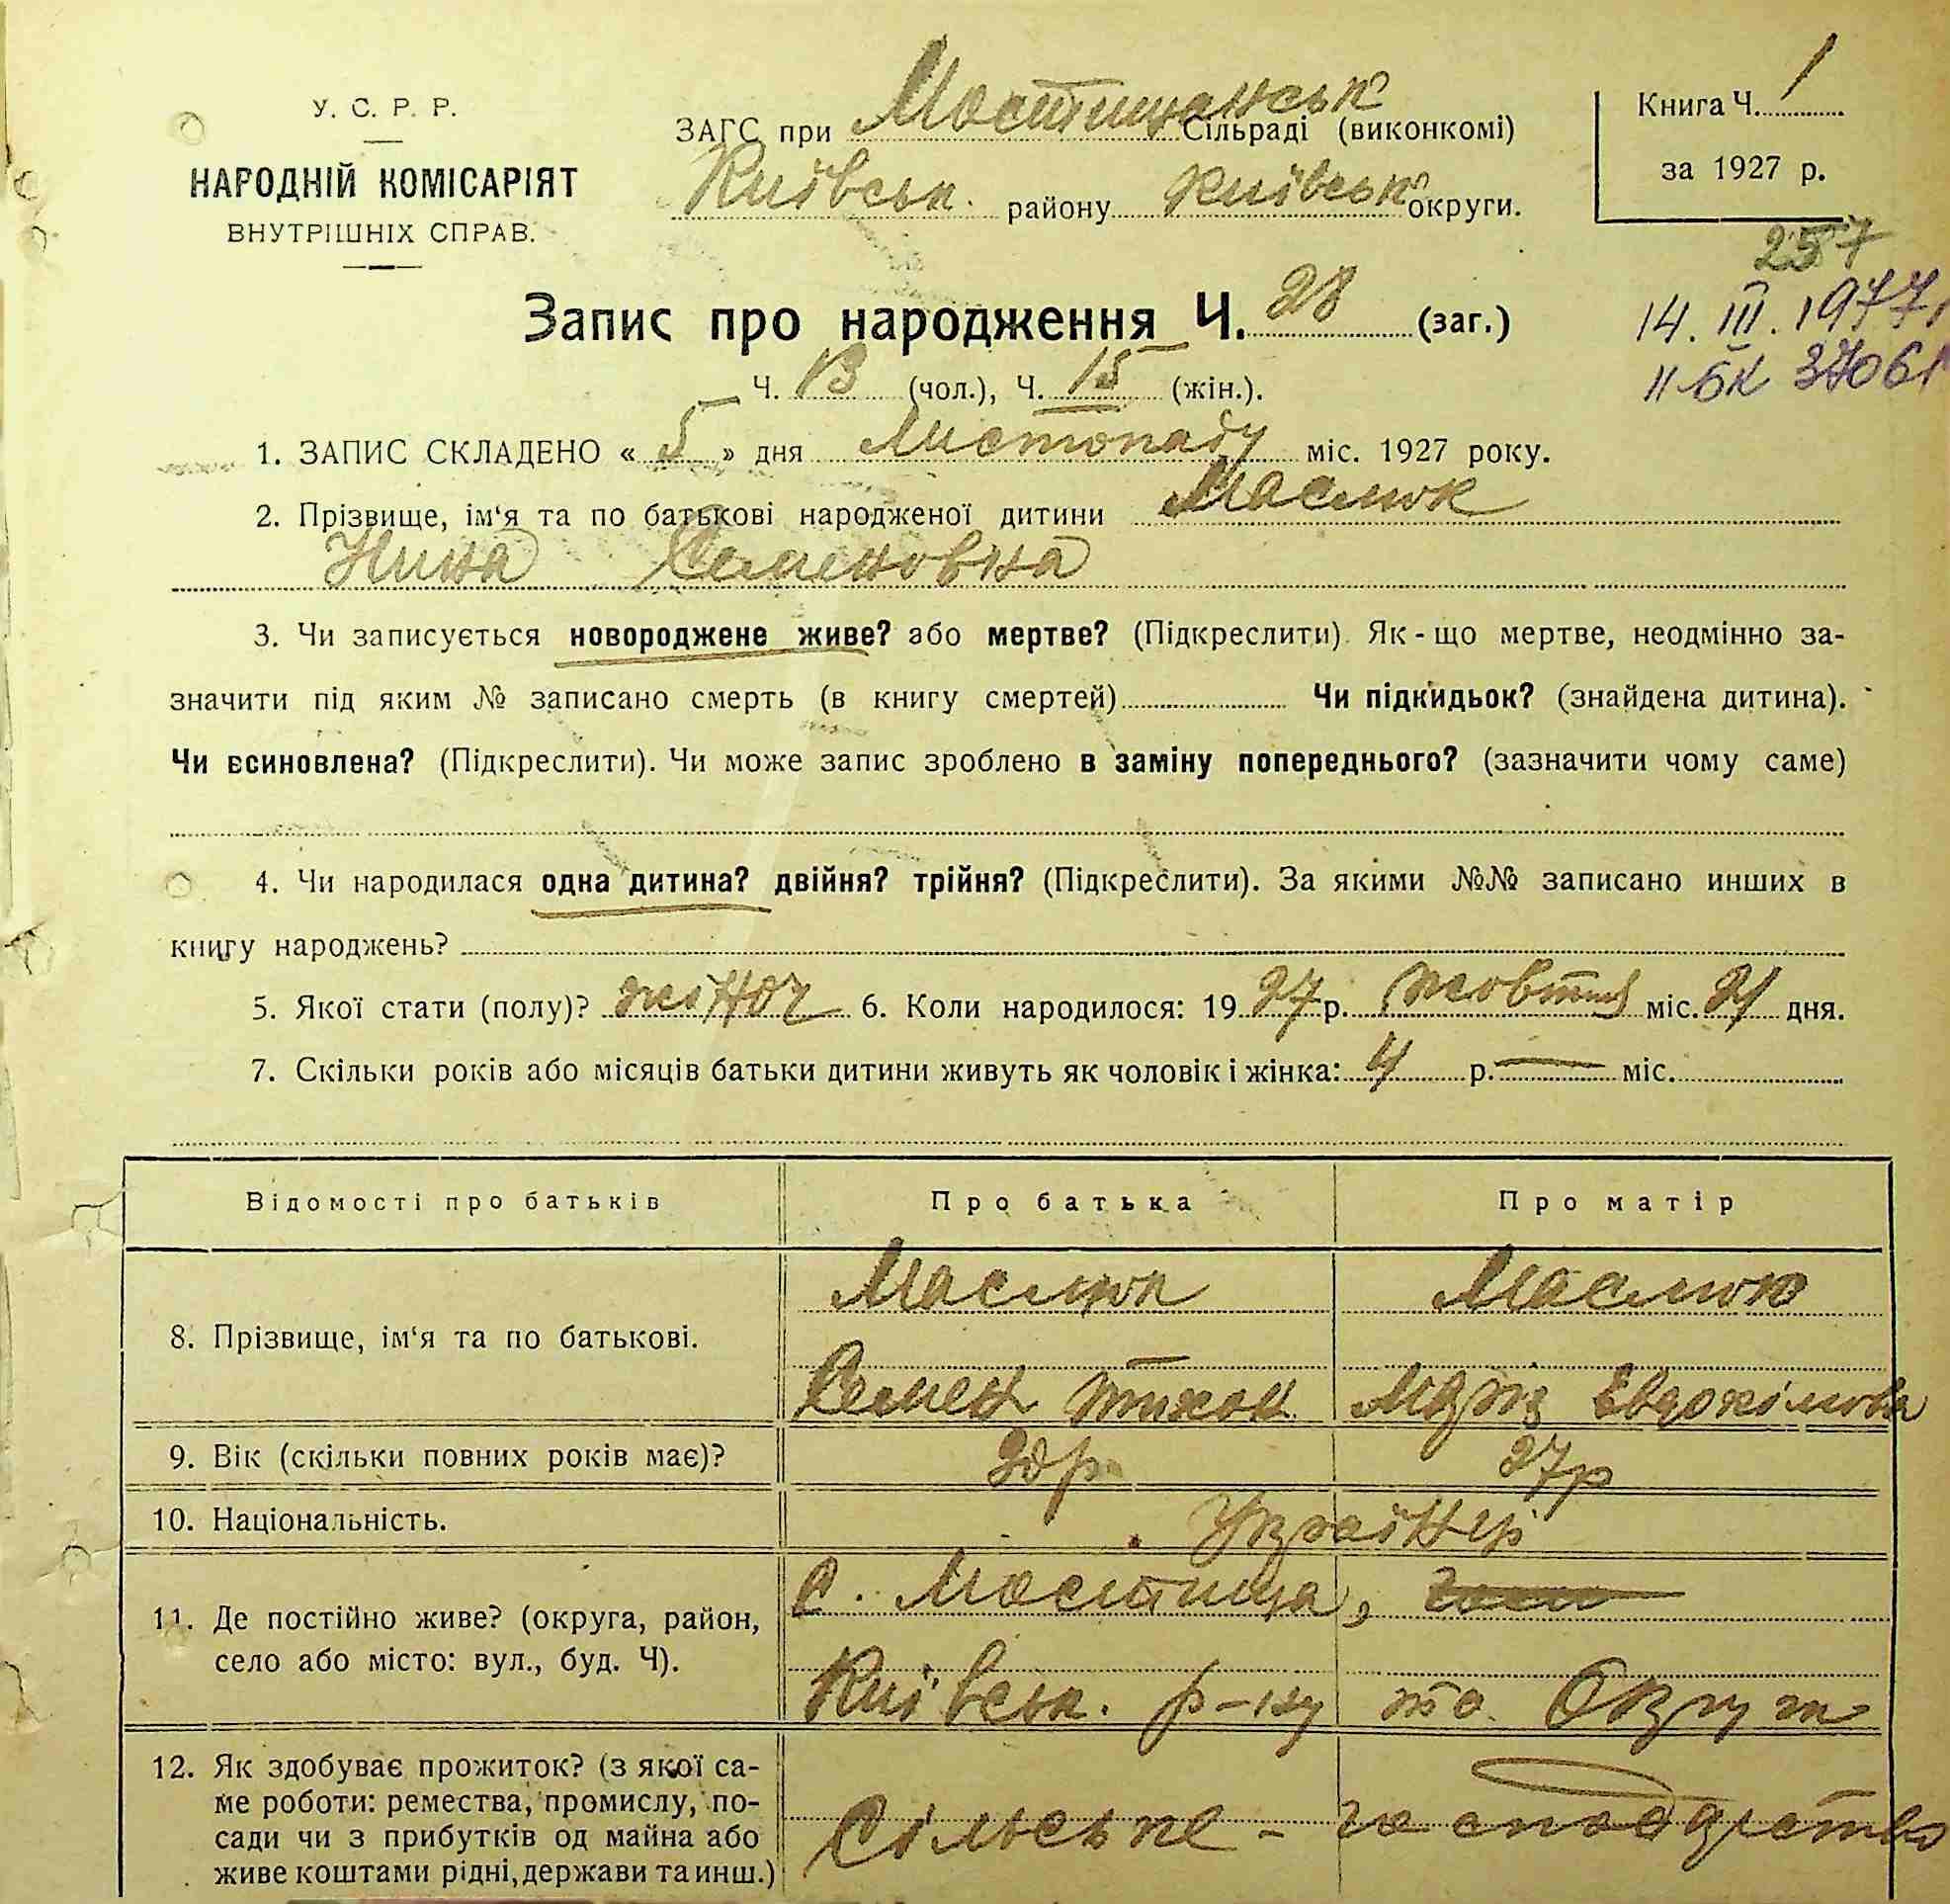 У. С. Р. Р.
НАРОДНІЙ КОМІСАРІЯТ
ВНУТРІШНІХ СПРАВ.
ЗАГС при Мостищанськ Сільраді (виконкомі)
Київськ. району Київськ округи.
Книга Ч. 1
за 1927 р.
257
14. III. 1977
II БК 37061
Запис про народження Ч. 28 (заг.)
Ч. 13 (чол.), Ч. 15 (жін.).
1. ЗАПИС СКЛАДЕНО « 5 » дня Листопаду міс. 1927 року.
2. Прізвище, ім‘я та по батькові народженої дитини Маслюк
Нина Семеновна
3. Чи записується новороджене живе? або мертве? (Підкреслити). Як-що мертве, неодмінно за-
значити під яким № записано смерть (в книгу смертей) Чи підкидьок? (знайдена дитина).
Чи всиновлена? (Підкреслити). Чи може запис зроблено в заміну попереднього? (зазначити чому саме)
4. Чи народилася одна дитина? двійня? трійня? (Підкреслити). За якими №№ записано инших в
книгу народжень?
5. Якої стати (полу)? жіноч 6. Коли народилося: 1927 р. жовтня міс. 21 дня.
7. Скільки років або місяців батьки дитини живуть як чоловік і жінка: 4 р. — міс.
Відомості про батьків Про батька Про матір
8. Прізвище, ім‘я та по батькові.
Маслюк Маслюк
Семен Тихон Евдокімовна
9. Вік (скільки повних років має)? 27р
10. Національність. Українці
11. Де постійно живе? (округа, район,
село або місто: вул., буд. Ч).
с. Мостища,
Київськ. р-ну та Округи
12. Як здобуває прожиток? (з якої са-
ме роботи: ремества, промислу, по-
сади чи з прибутків од майна або
живе коштами рідні, держави та инш.)
Сільське - господарство